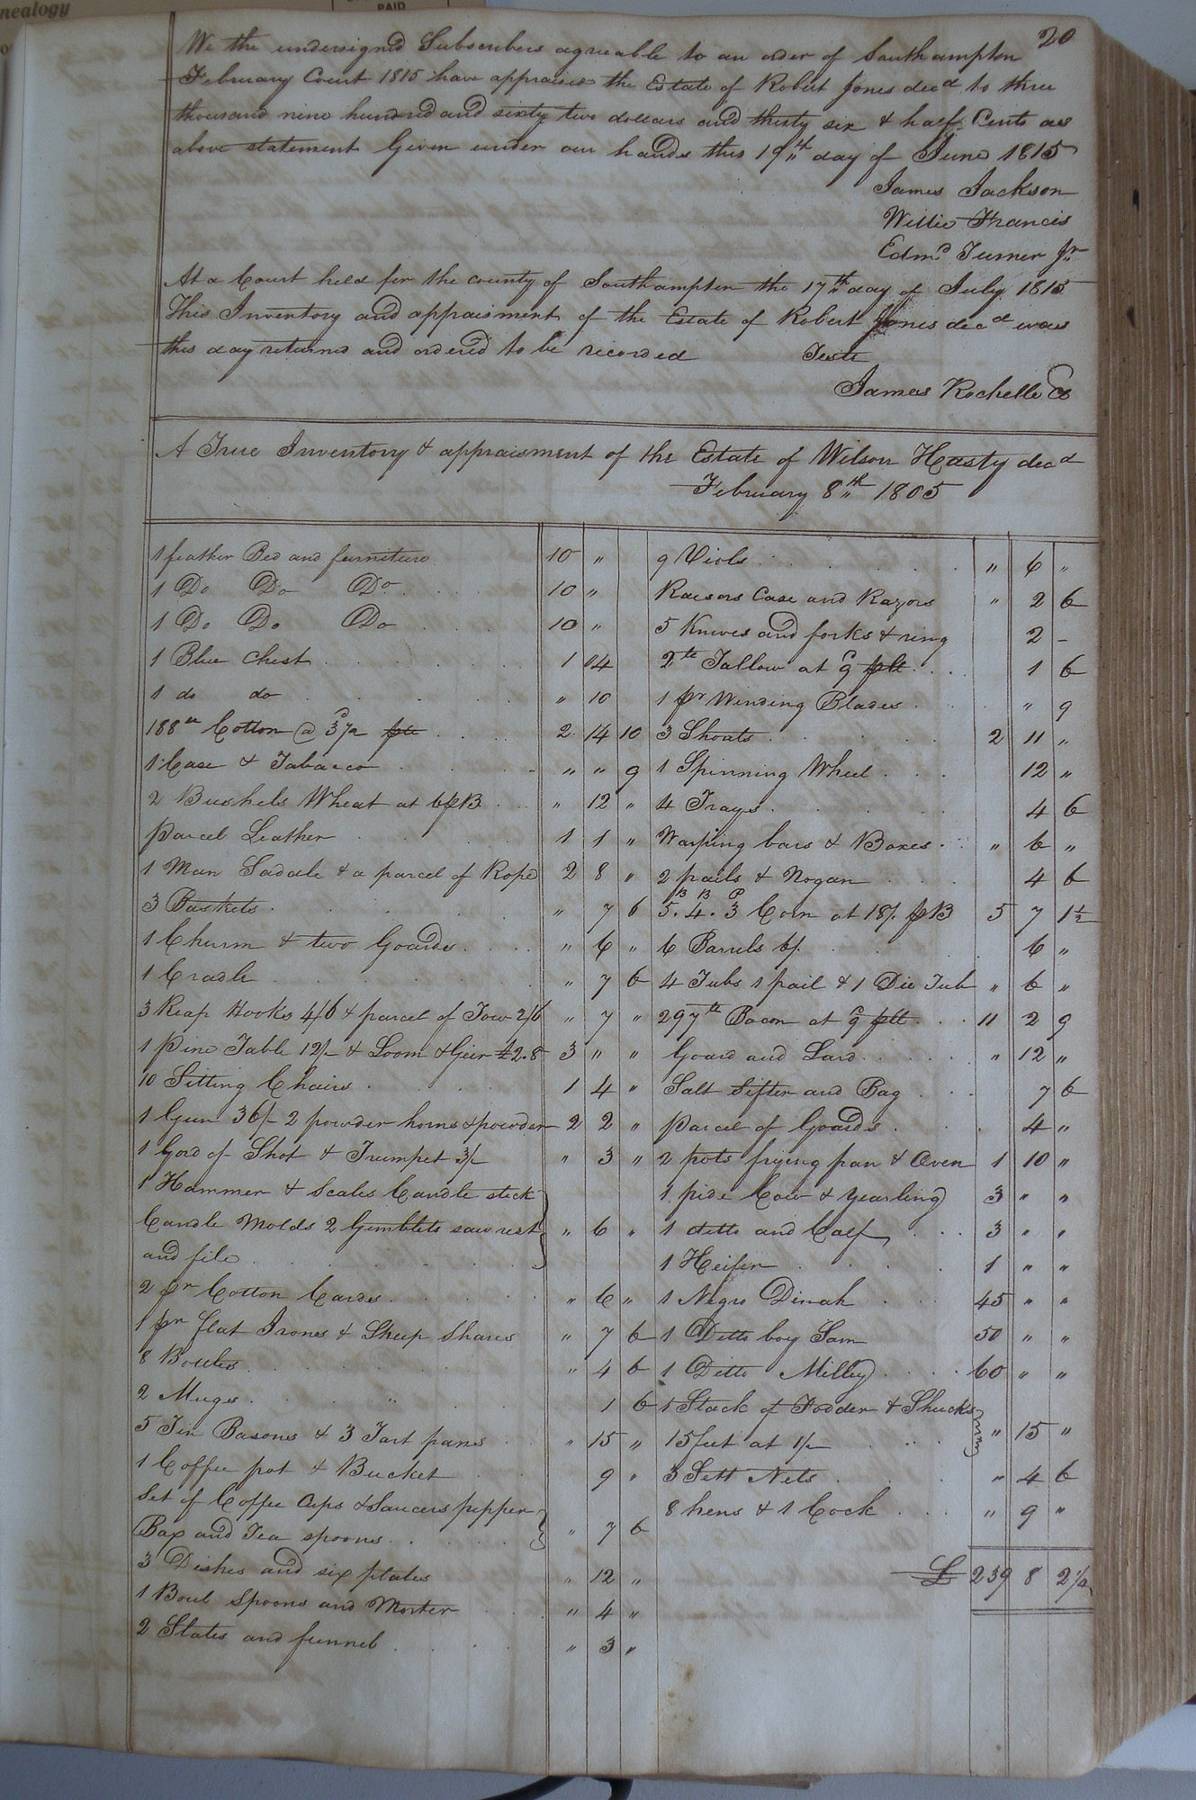 nealogy
PAID
20
We the undersigned Subscribers agreable to an order of Southampton
February Court 1815 have appraised the Estate of Robert Jones decd to three
thousand nine hundred and sixty two dollars and thirty six & half Cents as
above statement Given under our hands this 19th day of June 1815
James Jackson
Willie Francis
Edmd Turner Jr
At a Court held for the county of Southampton the 17th day of July 1815
This Inventory and appraisment of the Estate of Robert Jones decd was
this day returned and ordered to be recorded Teste
James Rochelle Co
A True Inventory & appraisment of the Estate of Wilson Hasty decd
February 8th 1805
1 feather Bed and furniture 10 "
1 Do Do Do 10 "
1 Do Do Do 10 "
1 Blue Chest 1 04
1 do do " 10
188 lb Cotton @ 3½ d plb 2 14 10
1 Case & Tabacco " " 9
2 Bushels Wheat at 6/ pB " 12 "
parcel Leather 1 1 "
1 Man Saddle & a parcel of Rope 2 8 "
3 Baskets " 7 6
1 Churm & two Goards " 6 "
1 Cradle " 7 6
3 Reap Hooks 4/6 & parcel of Tow 2/6 " 7 "
1 Pine Table 12/- & Loom & Geer £2.8 3 " "
10 Sitting Chairs 1 4 "
1 Gun 36/- 2 powder horns & powder 2 2 "
1 Gord of Shot & Trumpet 3/- " 3 "
1 Hammer & Scales Candle stick
Candle Molds 2 Gimblets saw rest " 6 "
and file
2 pr Cotton Cards " 6 "
1 pr flat Irons & Sheep Shares " 7 6
8 Bottles " 4 6
2 Mugs 1 6
5 Tin Basons & 3 Tart pans " 15 "
1 Coffee pot & Bucket 9 "
Set of Coffee Cups & Saucers pepper
Box and Tea spoons " 7 6
3 Dishes and six plates " 12 "
1 Boul Spoons and Morter " 4 "
2 Slates and funnel " 3 "
9 Viols " 6 "
Raesors Case and Razors " 2 6
5 Knives and forks & ring 2 -
2 lb Tallow at 9 d plb 1 6
1 pr Winding Blades " 9
3 Shoats 2 11 "
1 Spinning Wheel 12 "
4 Trays 4 6
Warping bars & Boxes " 6 "
2 pails & Nogan 4 6
B B P
5. 4. 3 Corn at 18/. pB 5 7 1½
6 Barrels 6/. 6 "
4 Tubs 1 pail & 1 Die Tub " 6 "
297 lb Bacon at 9 d plb 11 2 9
Goard and Lard " 12 "
Salt Sifter and Bag 7 6
parcel of Goards 4 "
2 pots frying pan & Oven 1 10 "
1 pide Cow & yearling 3 " "
1 ditto and Calf 3 " "
1 Heifer 1 " "
1 Negro Dinah 45 " "
1 Ditto boy Sam 50 " "
1 Ditto Milley 60 " "
1 Stack of Fodder & Shucks
15 feet at 1/- " 15 "
3 Sett Nets " 4 6
8 hens & 1 Cock " 9 "
£ 239 8 2½